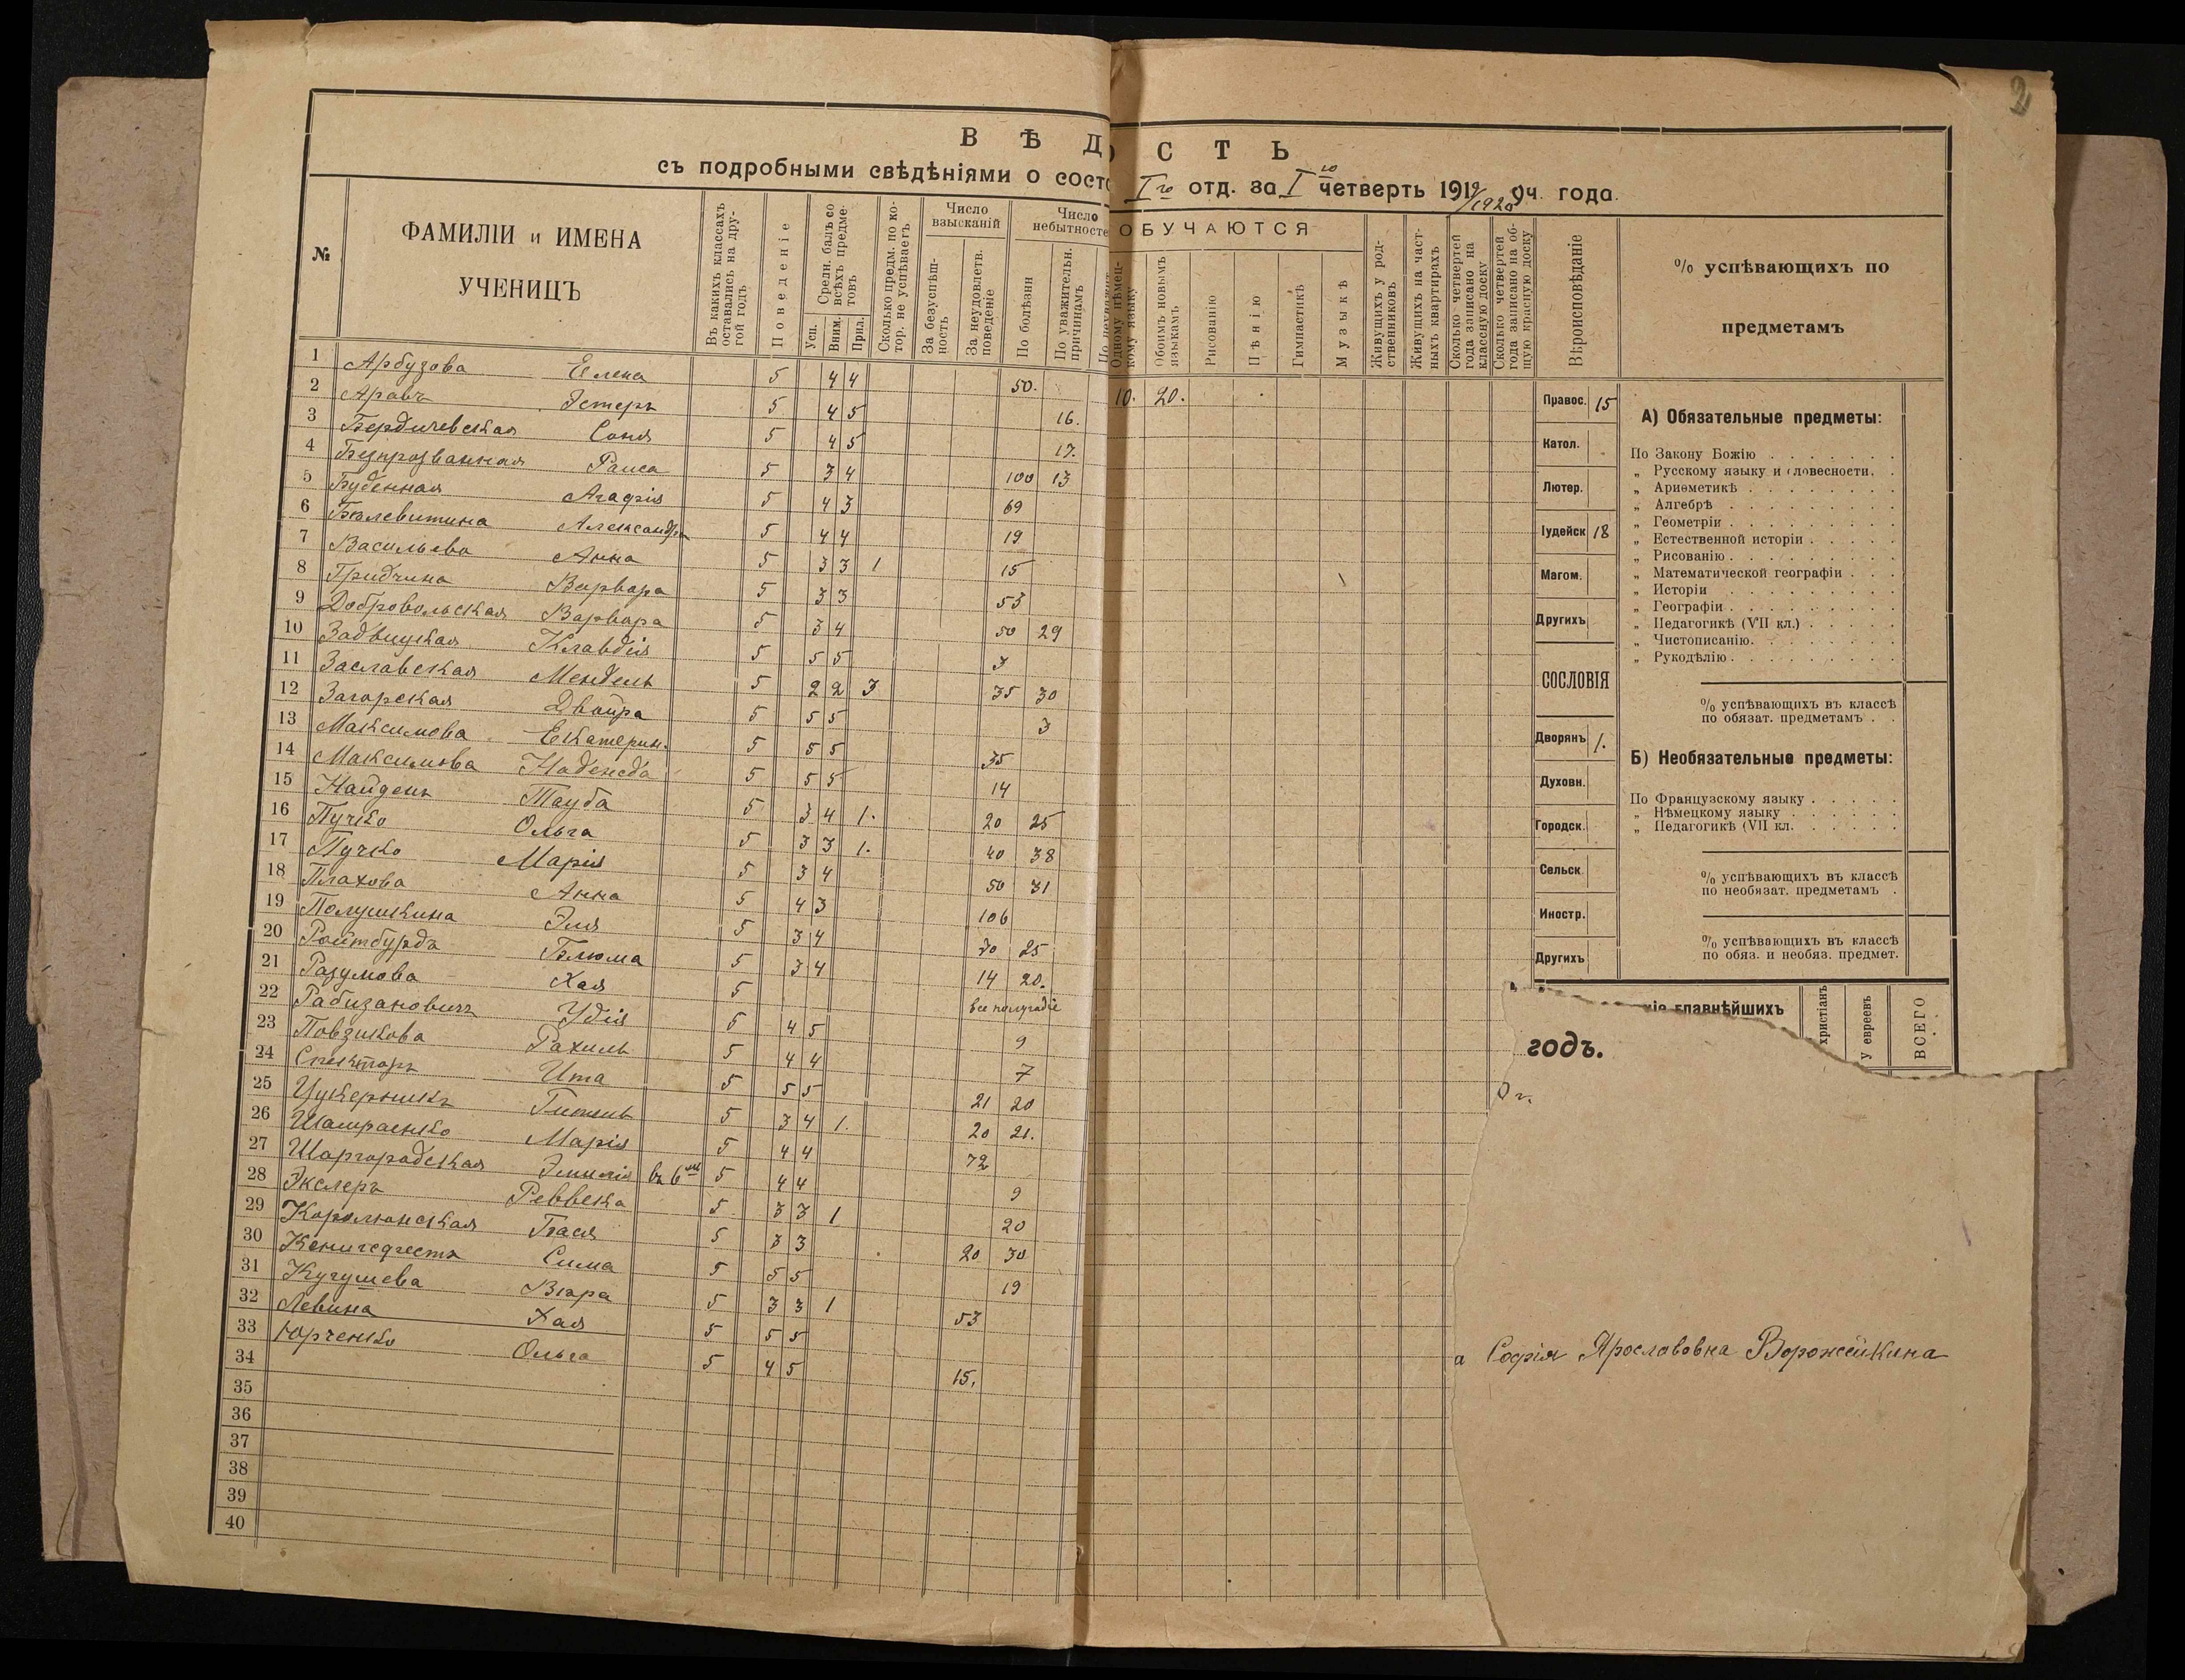 2
ВѢД О С Т Ь
съ подробными свѣдѣніями о сост
Iго отд. за I ю четверть 1919/1920 уч. года.
№
ФАМИЛІИ и ИМЕНА
УЧЕНИЦЪ
Въ какихъ классахъ оставались на другой годъ
Поведеніе
Средн. балъ со всѣхъ предметовъ
Усп.
Вним.
Прил.
Сколько предм. по котор. не успѣваетъ
Число взысканій
За безуспѣшность
За неудовлетв. поведеніе
Число небытносте
По болѣзни
По уважительн. причинамъ
ОБУЧАЮТСЯ
Одному нѣмецкому языку
Обоимъ новымъ языкамъ
Рисованію
Пѣнію
Гимнастикѣ
Музыкѣ
Живущихъ у родственниковъ
Живущихъ на частныхъ квартирахъ
Сколько четвертей года записано на классную доску
Сколько четвертей года записано на общую красную доску
Вѣроисповѣданіе
% успѣвающихъ по
предметамъ
1 Арбузова Елена 5 4 4 50. 10. 20.
2 Аравъ Эстеръ 5 4 5 16.
3 Бердичевская Соня 5 4 5 17.
4 Безпрозванная Раиса 5 3 4 100 13
5 Буденная Агафія 5 4 3 69
6 Бѣлевитина Александра 5 4 4 19
7 Васильева Анна 5 3 3 1 15
8 Гридчина Варвара 5 3 3 53
9 Добровольская Варвара 5 3 4 50 29
10 Задвицкая Клавдія 5 5 5 3
11 Заславская Мендель 5 2 2 3 35 30
12 Загорская Двойра 5 5 5 3
13 Максимова Екатерин. 5 5 5 35
14 Максимова Надежда 5 5 5 14
15 Найдень Тауба 5 3 4 1. 20 25
16 Пучко Ольга 5 3 3 1. 40 38
17 Пучко Марія 5 3 4 50 31
18 Плахова Анна 5 4 3 106
19 Полушкина Эля 5 3 4 70 25
20 Ройтбурдъ Блюма 5 3 4 14 20.
21 Разумова Хая 5 все полугодіе
22 Рабизановичъ Удія 5 4 5 9
23 Повзикова Рахиль 5 4 4 7
24 Спекторъ Ита 5 5 5 21 20
25 Цукерникъ Гитель 5 3 4 1. 20 21.
26 Шамраенко Марія 5 4 4 72
27 Шаргородская Эмилія въ 6мъ 5 4 4 9
28 Экслеръ Реввека 5 3 3 1 20
29 Каролинская Бася 5 3 3 20 30
30 Кенигсфестъ Сима 5 5 5 19
31 Кугушева Вѣра 5 3 3 1 53
32 Левина Хая 5 5 5
33 Юрченко Ольга 5 4 5 15.
34
35
36
37
38
39
40
Правос. 15
Катол.
Лютер.
Іудейск 18
Магом.
Другихъ
СОСЛОВІЯ
Дворянъ 1.
Духовн.
Городск.
Сельск
Иностр.
Другихъ
А) Обязательные предметы:
По Закону Божію
„ Русскому языку и словесности.
„ Ариѳметикѣ
„ Алгебрѣ
„ Геометріи
„ Естественной исторіи
„ Рисованію
„ Математической географіи
„ Исторіи
„ Географіи
„ Педагогикѣ (VII кл.)
„ Чистописанію.
„ Рукодѣлію
% успѣвающихъ въ классѣ
по обязат. предметамъ
Б) Необязательные предметы:
По Французскому языку
„ Нѣмецкому языку
„ Педагогикѣ (VII кл.
% успѣвающихъ въ классѣ
по необязат. предметамъ
% успѣвающихъ въ классѣ
по обяз. и необяз. предмет.
ніе главнѣйшихъ
христіанъ
у евреевъ
ВСЕГО
годъ.
0 г.
а Софія Ярославовна Ворожейкина